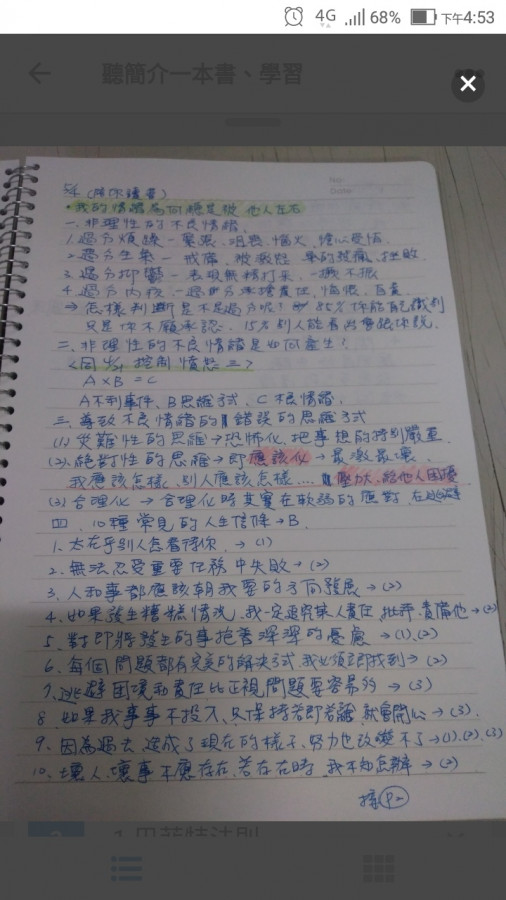 4G 68% 下午4:53
聽簡介一本書、學習
5/4 (陳DR讀書)
•我的情緒為何總是被他人左右
一、非理性的不良情緒,
1.過分煩躁-緊張、沮喪、惱火、擔心受怕
2.過分生氣-戒備、被激怒
3.過分抑鬱-表現無精打采、一撅不振
4.過分內疚-過分承擔責任、悔恨、自責
→怎樣判斷是不是過分呢? 85%你能自己識別
只是你不願承認、15%別人能看出會跟你說.
二、非理性的不良情緒是如何產生?
<同 控制憤怒三>
A×B=C
A不利事件、B思維方式、C不良情緒,
三、導致不良情緒的錯誤的思維方式
(1).災難性的思維→恐怖化、把事想的特別嚴重
(2).絕對性的思維→即應該化→
我應該怎樣、別人應該怎樣…. 壓力大,給他人困擾
(3)合理化→合理化時其實在軟弱的應對
四、10種常見的人生信條→B.
1、太在乎別人怎看待你、→(1)
2、無法忍受重要任務中失敗→(2)
3、人和事都應該朝我要的方向發展→(2)
4、如果發生糟糕情況、我一定追究某人責任,批評、責備他→(2)
5、對即將發生的事抱著深深的憂慮→(1).(2)
6、每個問題都有完美的解決方式,我必須立即找到→(2)
7、逃避困境和責任比正視問題要容易的→(3)
8、如果我事事不投入、只保持若即若離,就會開心→(3).
9、因為過去造成了現在的樣子、努力也改變不了→(1).(2).(3)
10、壞人、壞事不應存在,若存在時、我不知怎辦→(2)
接P2